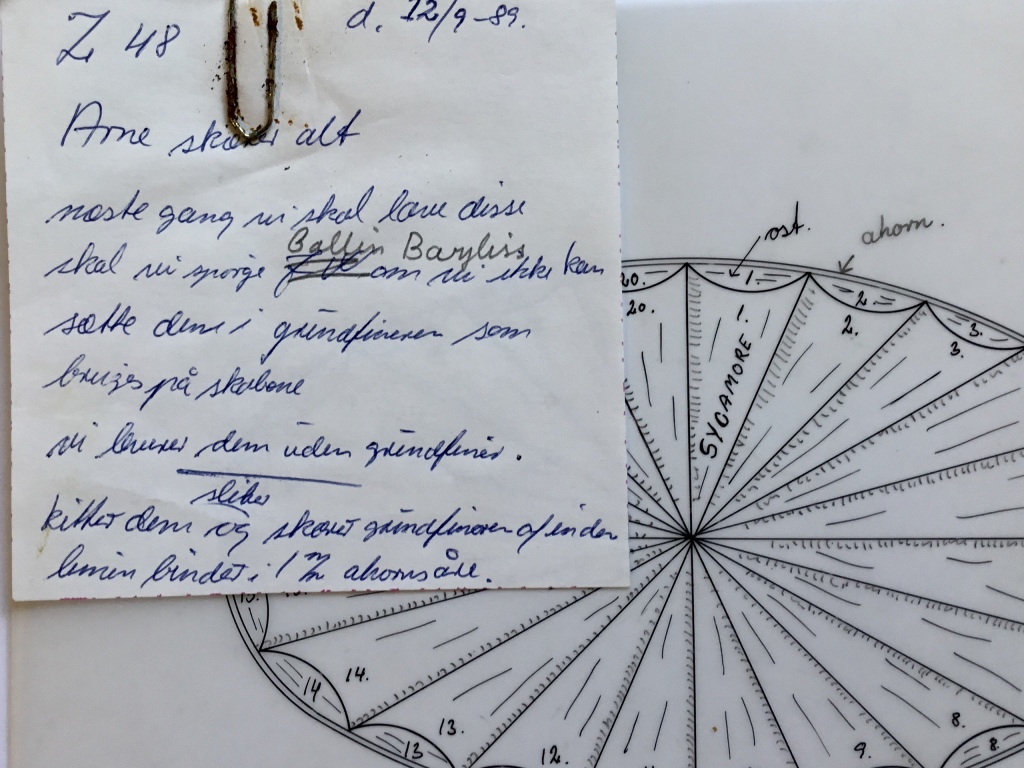 Z 48
d. 12/9-89.
Arne skærer alt
næste gang vi skal lave disse
Ballin Bayliss
skal vi spørge om vi ikke kan
sætte dem i grundfineren som
bruges på skabene
vi leverer dem uden grundfinér.
sliber
kitter dem og skærer grundfineren af inden
limen binder i 1 m/m ahornsåre.
øst.
ahorn.
20. 1. 2. 3.
20. 2. 3.
SYCAMORE !
14.
14
13.
13
12.
9.
8.
8.